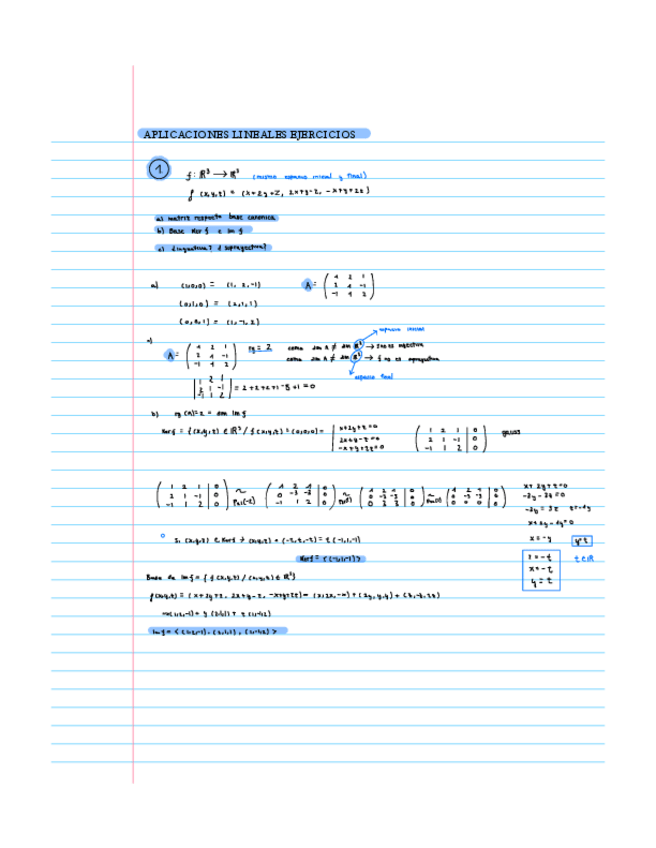 APLICACIONES LINEALES EJERCICIOS
1
f: ℝ³ → ℝ³ (mismo espacio inicial y final)
f (x,y,z) = (x+2y+z, 2x+y-z, -x+y+2z)
a) matriz respecto base canonica
b) Base Ker f e Im f
c) ¿inyectiva? ¿ suprayectiva?
a) (1,0,0) = (1, 2, -1) A = ( 1 2 1
2 1 -1
-1 1 2 )
(0,1,0) = (2,1,1)
(0,0,1) = (1,-1,2)
espacio inicial
A = ( 1 2 1
2 1 -1
-1 1 2 ) rg = 2
como dim A ≠ dim ℝ³ → f no es inyectiva
como dim A ≠ dim ℝ³ → f no es
espacio final
| 1 2 1
2 1 -1
-1 1 2 | = 2+2+2+1-8+1 = 0
b) rg (A)=2 = dim Im f
Ker f = {(x,y,z) ∈ ℝ³ / f(x,y,z) = (0,0,0) = | x+2y+z=0
2x+y-z=0
-x+y+2z=0
( 1 2 1 | 0
2 1 -1 | 0
-1 1 2 | 0 ) gauss
( 1 2 1 | 0
2 1 -1 | 0
-1 1 2 | 0 ) ~ ( 1 2 1 | 0
0 -3 -3 | 0
-1 1 2 | 0 ) ~ ( 1 2 1 | 0
0 -3 -3 | 0
0 3 3 | 0 ) ~ ( 1 2 1 | 0
0 -3 -3 | 0
0 0 0 | 0 )
x+2y+z=0
-3y-3z=0
-3y = 3z z=-1y
x+2y-1y=0
x=-y y=t
z=-t
x=-t
y=t
t∈ℝ
Si (x,y,z) ∈ Kerf → (x,y,z) = (-t,t,-t) = t(-1,1,-1)
Kerf = <(-1,1,-1)>
Base de Im f = { f(x,y,z) / (x,y,z) ∈ ℝ³}
f(x,y,z) = (x+2y+z, 2x+y-z, -x+y+2z) = (x,2x,-x) + (2y,y,y) + (z,-z,2z)
x(1,2,-1) + y (2,1,1) + z (1,-1,2)
Imf = < (1,2,-1), (2,1,1), (1,-1,2) >